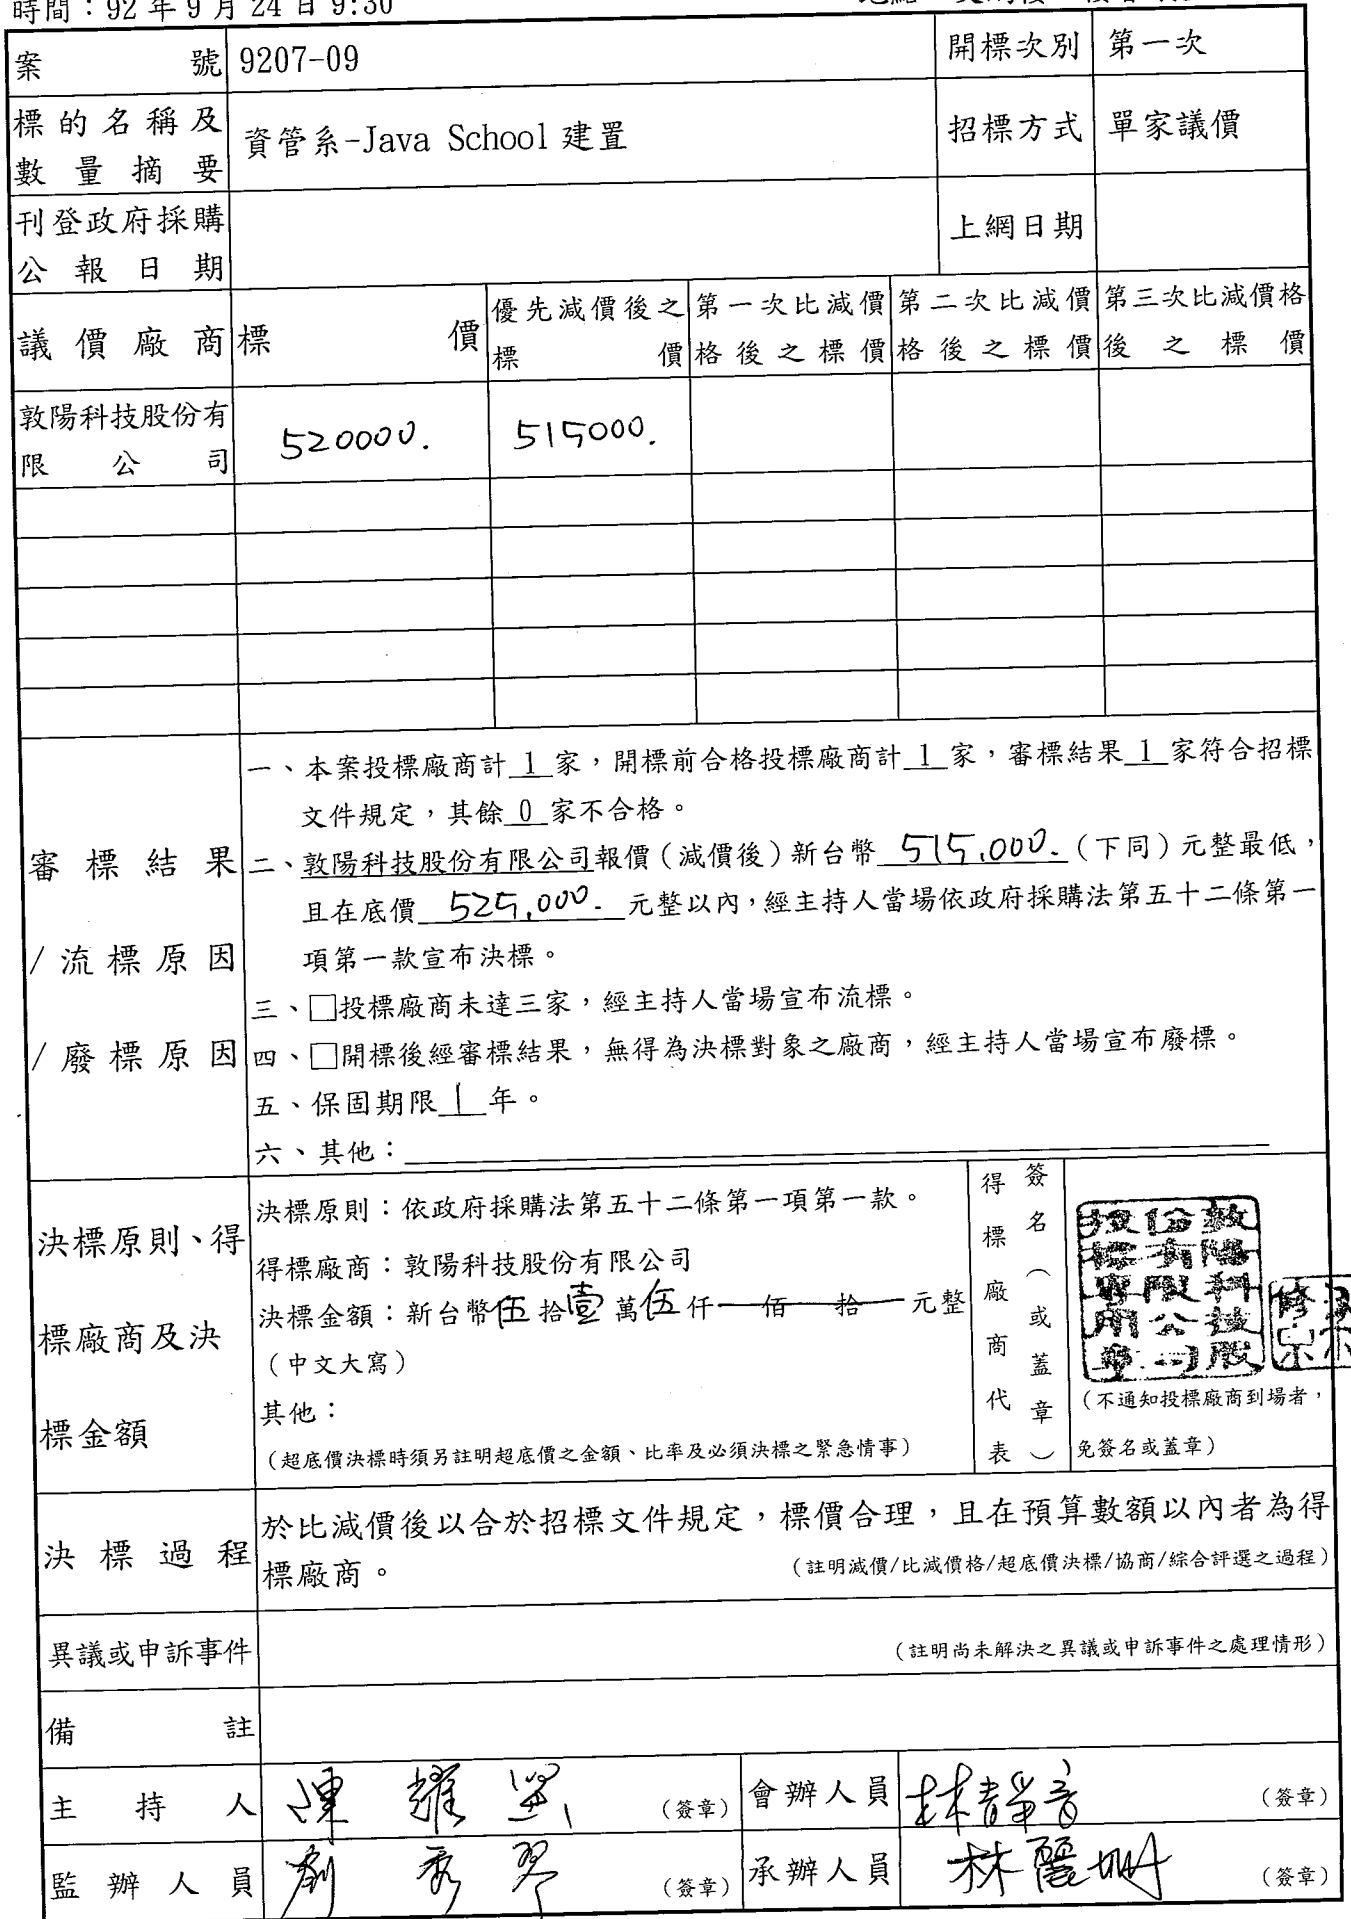 時間：92 年 9 月 24 日 9:30
案號 9207-09 開標次別 第一次
標的名稱及
數量摘要
資管系-Java School 建置
招標方式 單家議價
刊登政府採購
公報日期
上網日期
議價廠商 標價
優先減價後之
標價
第一次比減價
格後之標價
第二次比減價
格後之標價
第三次比減價格
後之標價
敦陽科技股份有
限公司
520000. 515000.
審標結果
/流標原因
/廢標原因
一、本案投標廠商計 1 家，開標前合格投標廠商計 1 家，審標結果 1 家符合招標
文件規定，其餘 0 家不合格。
二、敦陽科技股份有限公司報價（減價後）新台幣 515,000. （下同）元整最低，
且在底價 525,000. 元整以內，經主持人當場依政府採購法第五十二條第一
項第一款宣布決標。
三、□投標廠商未達三家，經主持人當場宣布流標。
四、□開標後經審標結果，無得為決標對象之廠商，經主持人當場宣布廢標。
五、保固期限 1 年。
六、其他：
決標原則、得
標廠商及決
標金額
決標原則：依政府採購法第五十二條第一項第一款。
得標廠商：敦陽科技股份有限公司
決標金額：新台幣伍拾壹萬伍仟佰拾元整
（中文大寫）
其他：
（超底價決標時須另註明超底價之金額、比率及必須決標之緊急情事）
得標廠商代表
簽名（或蓋章）
敦陽科技股
份有限公司
投標專用章
（不通知投標廠商到場者，
免簽名或蓋章）
決標過程
於比減價後以合於招標文件規定，標價合理，且在預算數額以內者為得
標廠商。
（註明減價/比減價格/超底價決標/協商/綜合評選之過程）
異議或申訴事件
（註明尚未解決之異議或申訴事件之處理情形）
備註
主持人 陳耀 （簽章） 會辦人員 林靜音 （簽章）
監辦人員 劉秀琴 （簽章） 承辦人員 林麗珊 （簽章）